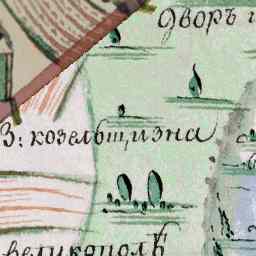 дворъ
З: козельщизна
великополѣ